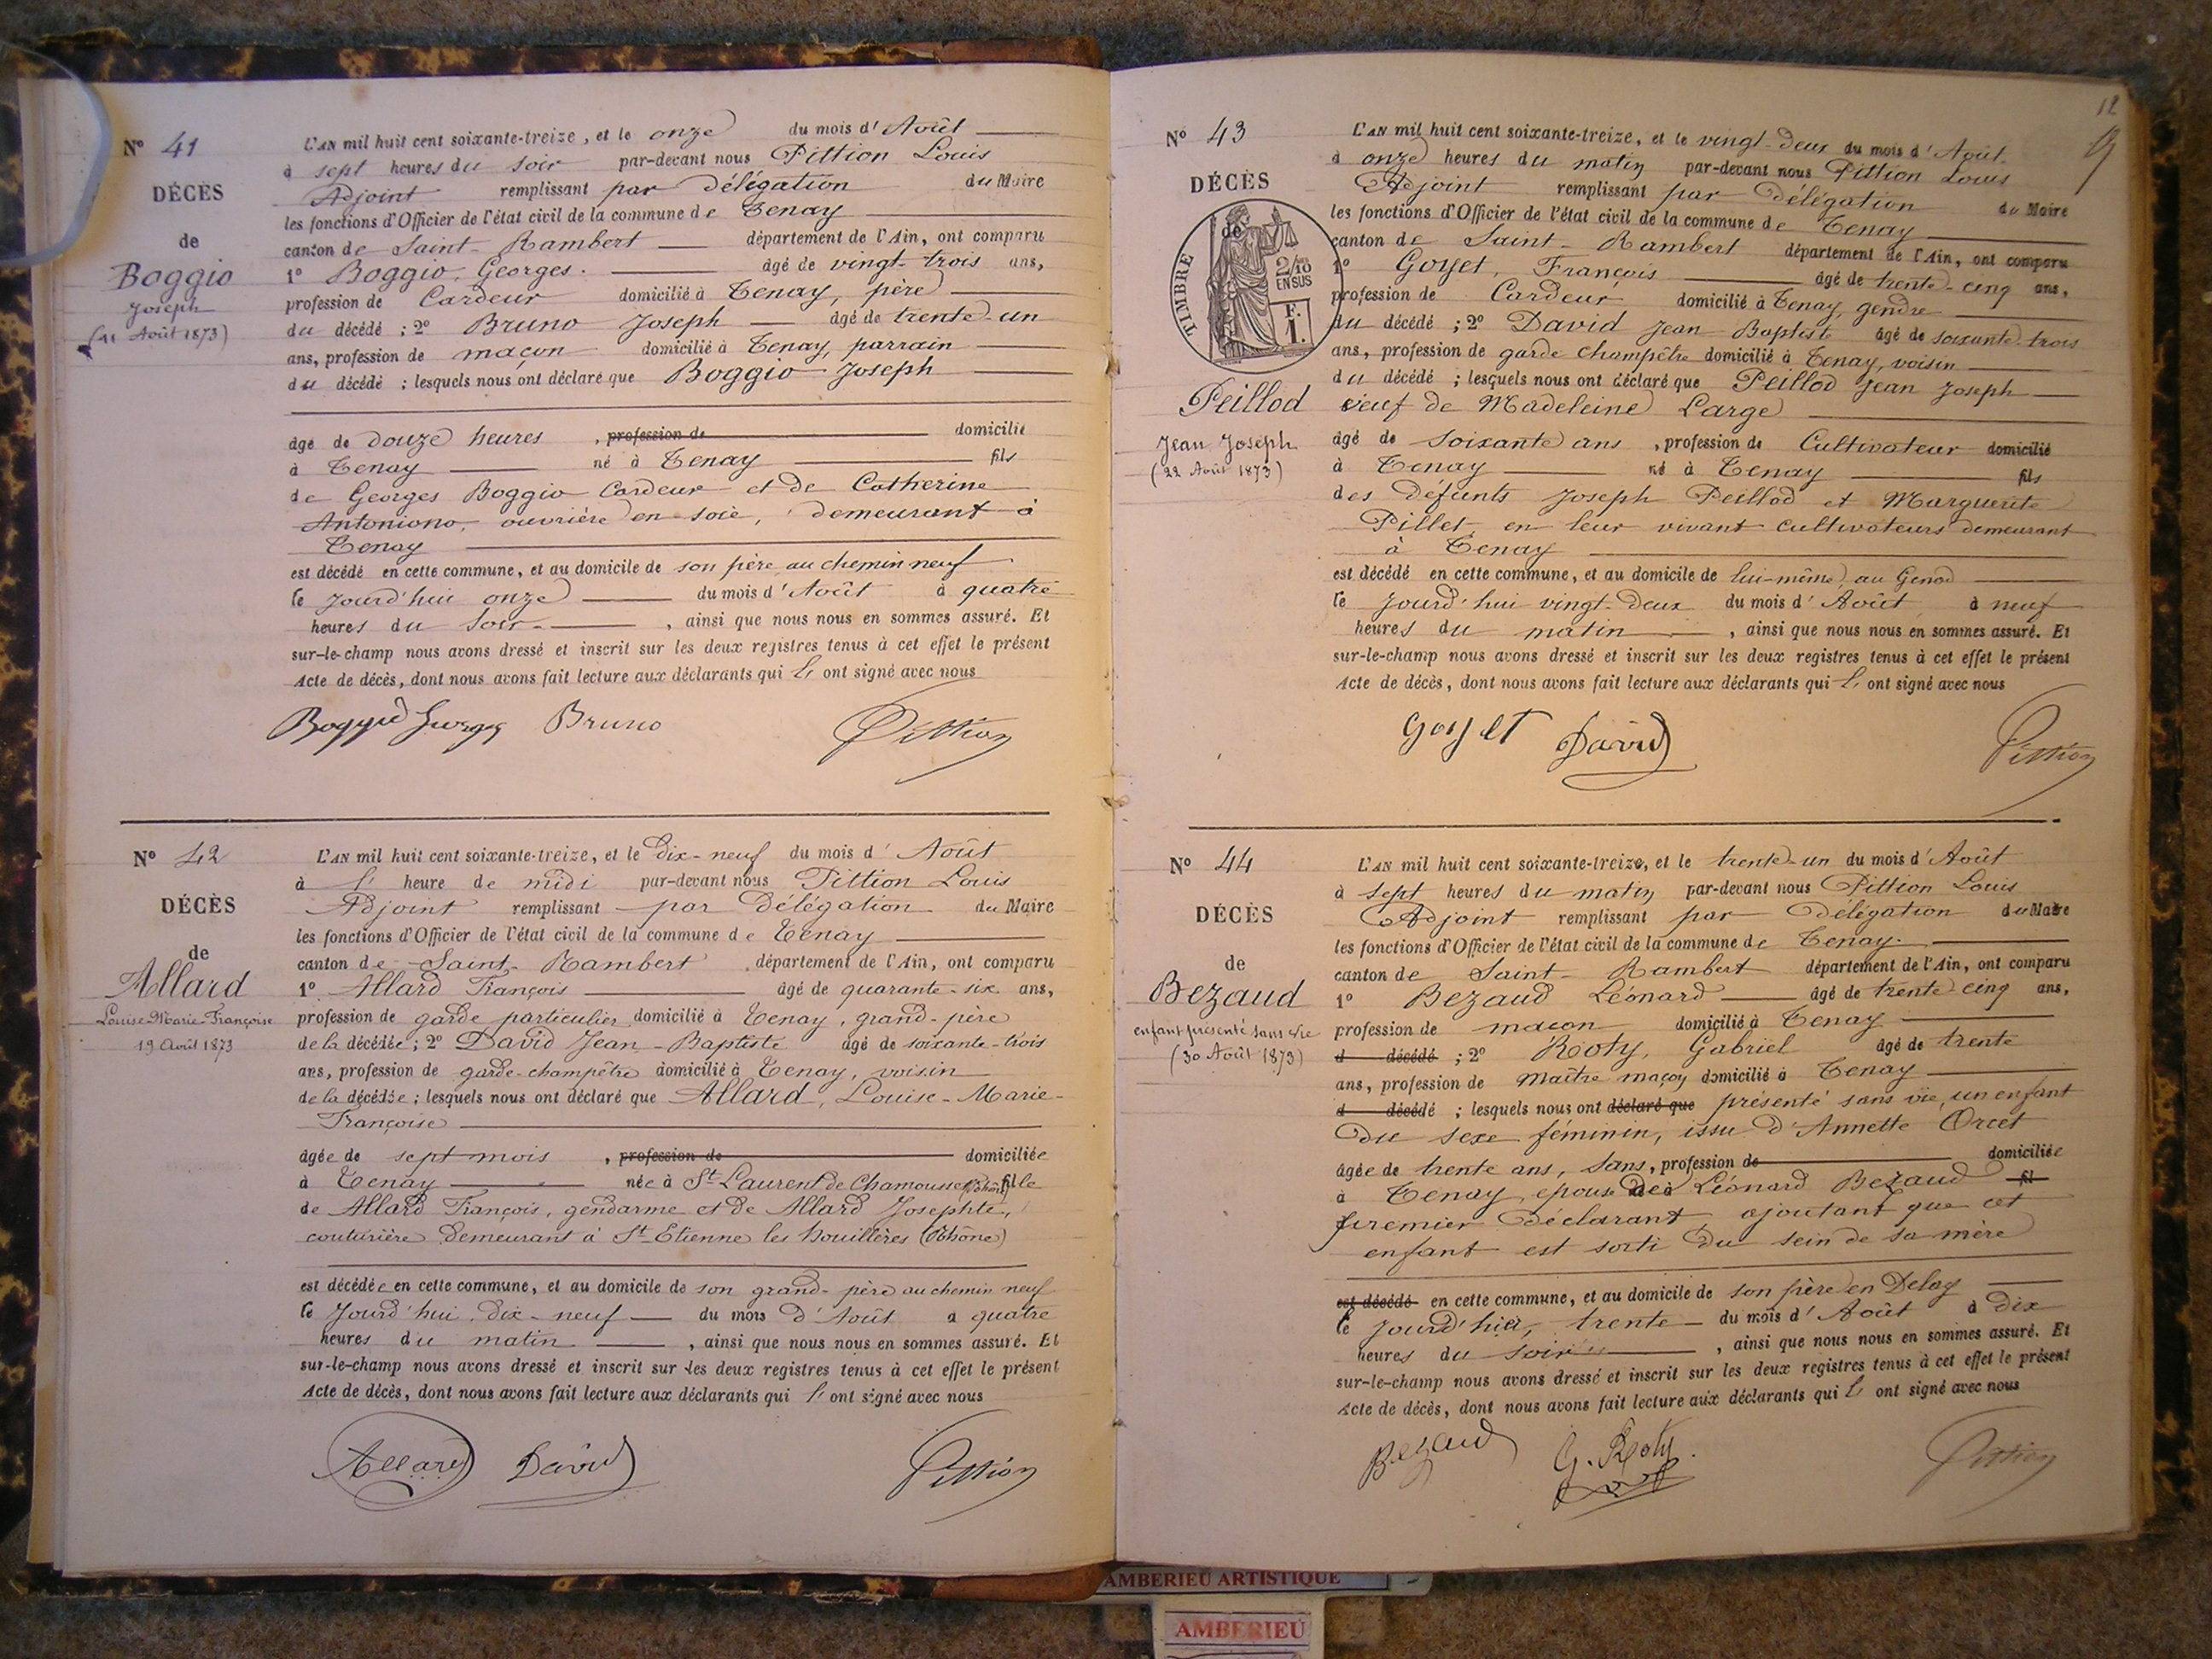 N° 41
DÉCÈS
de
Boggio
Joseph
(11 Août 1873)
L'AN mil huit cent soixante-treize, et le onze du mois d'Août
à sept heures du soir par-devant nous Pittion Louis
Adjoint remplissant par délégation du Maire
les fonctions d'Officier de l'état civil de la commune de Tenay
canton de Saint-Rambert département de l'Ain, ont comparu
1° Boggio, Georges. âgé de vingt-trois ans,
profession de Cardeur domicilié à Tenay, père
du décédé ; 2° Bruno Joseph âgé de trente-un
ans, profession de maçon domicilié à Tenay, parrain
du décédé ; lesquels nous ont déclaré que Boggio Joseph
âgé de douze heures , profession de domicilié
à Tenay né à Tenay fils
de Georges Boggio Cardeur et de Catherine
Antoniono, ouvrière en soie, demeurant à
Tenay
est décédé en cette commune, et au domicile de son père au chemin neuf
le jourd'hui onze du mois d'Août à quatre
heures du soir , ainsi que nous nous en sommes assuré. Et
sur-le-champ nous avons dressé et inscrit sur les deux registres tenus à cet effet le présent
Acte de décès, dont nous avons fait lecture aux déclarants qui l' ont signé avec nous
Boggio Georges Bruno Pittion
N° 42
DÉCÈS
de
Allard
Louise-Marie-Françoise
19 Août 1873
L'AN mil huit cent soixante-treize, et le dix-neuf du mois d'Août
à l' heure de midi par-devant nous Pittion Louis
Adjoint remplissant par délégation du Maire
les fonctions d'Officier de l'état civil de la commune de Tenay
canton de Saint-Rambert département de l'Ain, ont comparu
1° Allard François âgé de quarante-six ans,
profession de garde particulier domicilié à Tenay, grand-père
de la décédée ; 2° David Jean-Baptiste âgé de soixante-trois
ans, profession de garde-champêtre domicilié à Tenay, voisin
de la décédée ; lesquels nous ont déclaré que Allard, Louise-Marie-
Françoise
âgée de sept mois , profession de domiciliée
à Tenay née à St Laurent de Chamousset (Rhône) fille
de Allard François, gendarme et de Allard Josephte,
couturière demeurant à St-Etienne les houillères (Rhône)
est décédée en cette commune, et au domicile de son grand-père au chemin neuf
le jourd'hui dix-neuf du mois d'Août à quatre
heures du matin , ainsi que nous nous en sommes assuré. Et
sur-le-champ nous avons dressé et inscrit sur les deux registres tenus à cet effet le présent
Acte de décès, dont nous avons fait lecture aux déclarants qui l' ont signé avec nous
Allard David Pittion
12
N° 43
DÉCÈS
de
TIMBRE
2/10
EN SUS
F.
1.
Peillod
Jean Joseph
(22 Août 1873)
L'AN mil huit cent soixante-treize, et le vingt-deux du mois d'Août
à onze heures du matin par-devant nous Pittion Louis
Adjoint remplissant par délégation du Maire
les fonctions d'Officier de l'état civil de la commune de Tenay
canton de Saint-Rambert département de l'Ain, ont comparu
1° Goyet, François âgé de trente-cinq ans,
profession de Cardeur domicilié à Tenay, gendre
du décédé ; 2° David Jean Baptiste âgé de soixante-trois
ans, profession de garde champêtre domicilié à Tenay, voisin
du décédé ; lesquels nous ont déclaré que Peillod Jean Joseph
veuf de Madeleine Large
âgé de soixante ans , profession de Cultivateur domicilié
à Tenay né à Tenay fils
des défunts Joseph Peillod et Marguerite
Pillet en leur vivant cultivateurs demeurant
à Tenay
est décédé en cette commune, et au domicile de lui-même au Genod
le jourd'hui vingt-deux du mois d'Août à neuf
heures du matin , ainsi que nous nous en sommes assuré. Et
sur-le-champ nous avons dressé et inscrit sur les deux registres tenus à cet effet le présent
Acte de décès, dont nous avons fait lecture aux déclarants qui l' ont signé avec nous
Goyet David Pittion
N° 44
DÉCÈS
de
Bezaud
enfant présenté sans vie
(30 Août 1873)
L'AN mil huit cent soixante-treize, et le trente-un du mois d'Août
à sept heures du matin par-devant nous Pittion Louis
Adjoint remplissant par délégation du Maire
les fonctions d'Officier de l'état civil de la commune de Tenay.
canton de Saint-Rambert département de l'Ain, ont comparu
1° Bezaud Léonard âgé de trente-cinq ans,
profession de maçon domicilié à Tenay
d décédé ; 2° Roty, Gabriel âgé de trente
ans, profession de Maître maçon domicilié à Tenay
d décédé ; lesquels nous ont déclaré que présenté sans vie, un enfant
du sexe féminin, issu d'Annette Orcet
âgée de trente ans, sans , profession de domiciliée
à Tenay, épouse de Léonard Bezaud fil
premier déclarant ajoutant que cet
enfant est sorti du sein de sa mère
est décédé en cette commune, et au domicile de son père en Delay
le jourd'hier, trente du mois d'Août à dix
heures du soir , ainsi que nous nous en sommes assuré. Et
sur-le-champ nous avons dressé et inscrit sur les deux registres tenus à cet effet le présent
Acte de décès, dont nous avons fait lecture aux déclarants qui l' ont signé avec nous
Bezaud G. Roty. Pittion
AMBERIEU ARTISTIQUE
AMBERIEU